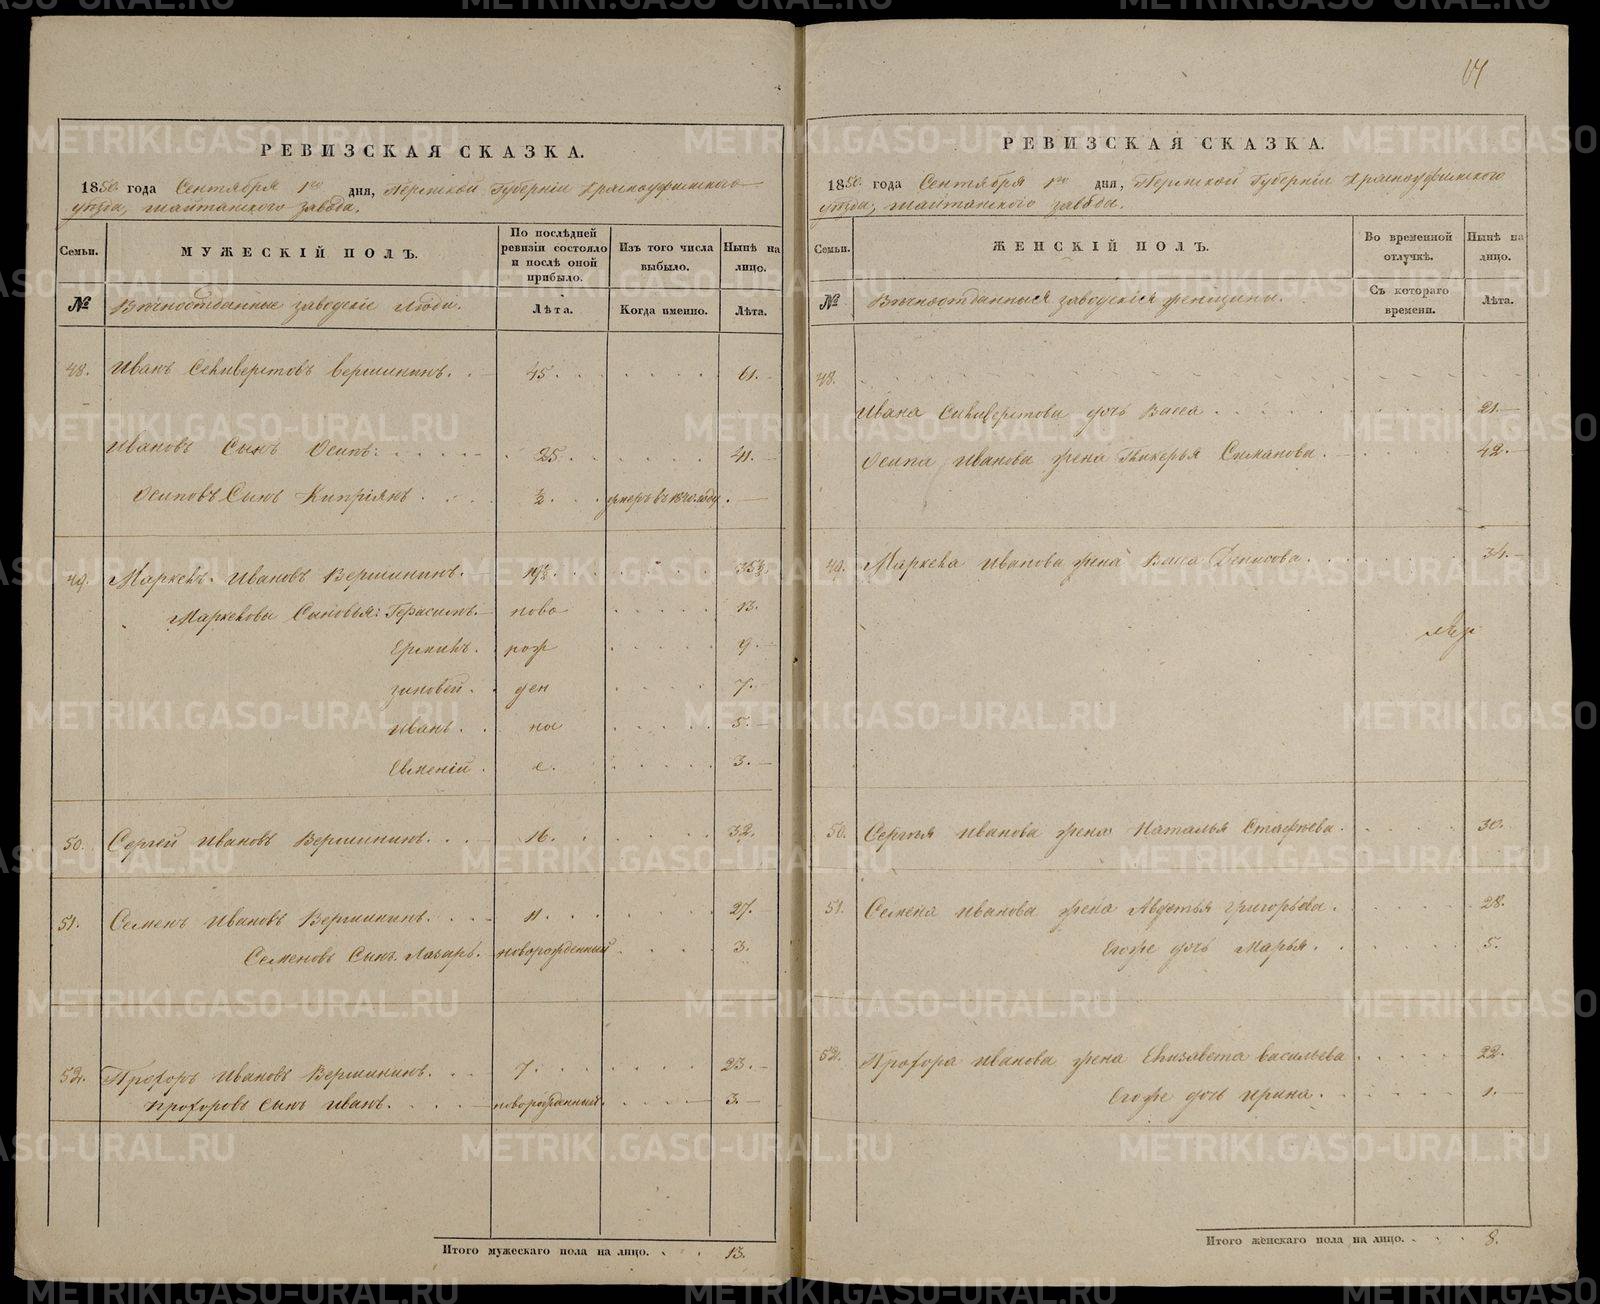 РЕВИЗСКАЯ СКАЗКА.
1850. года Сентября 1го дня, Пермской Губерніи Красноуфимского
уѣзда, Шайтанского завода.
Семьи. МУЖЕСКІЙ ПОЛЪ. По послѣдней ревизіи состояло и послѣ оной прибыло. Изъ того числа выбыло. Нынѣ на лицо.
№ Вѣчноотданные заводскіе люди. Лѣта. Когда именно. Лѣта.
48. Иванъ Селиверстовъ Вершининъ. 45. 61.
Ивановъ Сынъ Осипъ. 25. 41.
Осиповъ Сынъ Кипріянъ. ½. умеръ въ году
49. Маркелъ Ивановъ Вершининъ. 19½. 35½.
Маркелова Сыновья: Герасимъ. ново 13.
Ермилъ. рож 9.
Зиновей. ден 7.
Иванъ. ны 5.
Евменій. е. 3.
50. Сергей Ивановъ Вершининъ. 16. 32.
51. Семенъ Ивановъ Вершининъ. 11. 27.
Семеновъ Сынъ Лазарь. новорожденный 3.
52. Прохоръ Ивановъ Вершининъ. 7. 23.
Прохоровъ Сынъ Иванъ. новорожденный. 3.
Итого мужескаго пола на лицо. 13.
64
РЕВИЗСКАЯ СКАЗКА.
1850. года Сентября 1го дня, Пермской Губерніи Красноуфимского
уѣзда, Шайтанского завода.
Семьи. ЖЕНСКІЙ ПОЛЪ. Во временной отлучкѣ. Нынѣ на лицо.
№ Вѣчноотданныя заводскія женщины. Съ котораго времени. Лѣта.
48.
Ивана Силиверстова дочь Васса 21.
Осипа Иванова жена Гликерья Симанова. 42.
49. Маркела Иванова жена Васса Денисова. 34.
50. Сергѣя Иванова жена Наталья Стафѣева. 30.
51. Семена Иванова жена Авдотья Григорьева. 28.
Егоже дочь Марья. 5.
52. Прохора Иванова жена Елизавета Васильева 22.
Егоже дочь Ирина. 1.
Итого женскаго пола на лицо. 8.
METRIKI.GASO-URAL.RU